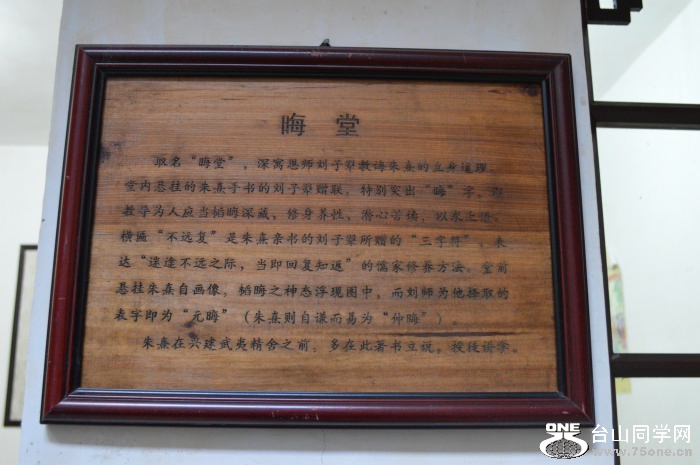 晦堂
取名“晦堂”，深寓恩师刘子翚教诲朱熹的立身道理。
堂内悬挂的朱熹手书的刘子翚赠联，特别突出“晦”字，
教导为人应当韬晦深藏，修身养性，潜心苦读，以求上进。
横匾“不远复”是朱熹亲书的刘子翚所赠的“三字符”，表
达“迷途不远之际，当即回复知返”的儒家修养方法。堂前
悬挂朱熹自画像，韬晦之神态浮现图中，而刘师为他择取的
表字即为“元晦”（朱熹则自谦而易为“仲晦”）。
朱熹在兴建武夷精舍之前，多在此著书立说，授徒讲学。
ONE 台山同学网
www.75one.cn